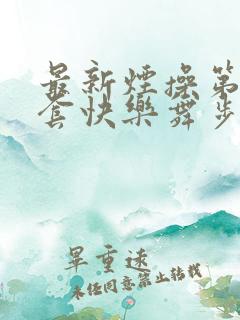 最新煙操第
套快樂舞步
草重遠
未经同意禁止转载